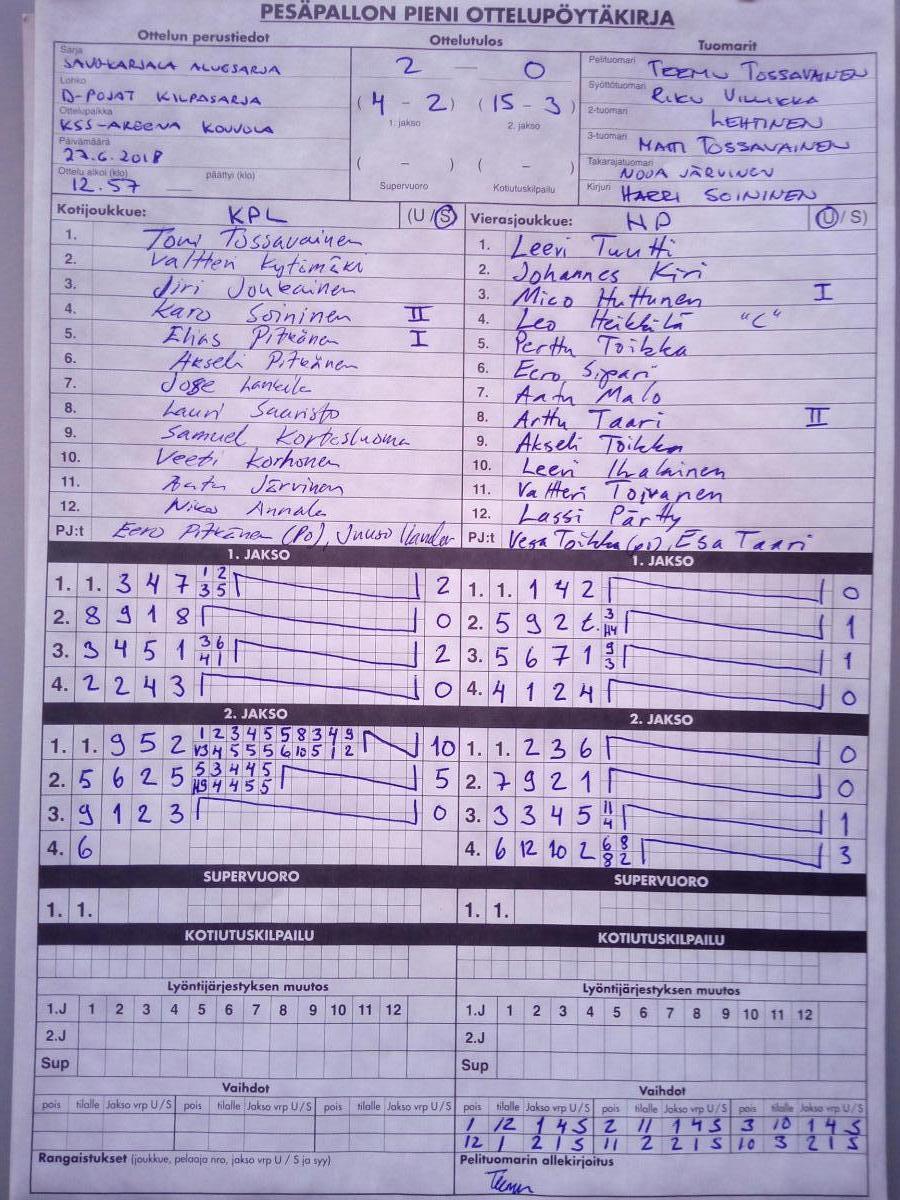 PESÄPALLON PIENI OTTELUPÖYTÄKIRJA
Ottelun perustiedot Ottelutulos Tuomarit
Sarja SAVO-KARJALA ALUESARJA
Lohko D-POJAT KILPASARJA
Ottelupaikka KSS-AREENA KOUVOLA
Päivämäärä 27.6.2018
Ottelu alkoi (klo) 12.57 päättyi (klo)
2 — 0
( 4 - 2 ) ( 15 - 3 )
1. jakso 2. jakso
( - ) ( - )
Supervuoro Kotiutuskilpailu
Pelituomari TEEMU TOSSAVAINEN
Syöttötuomari RIKU VILLIKKA
2-tuomari LEHTINEN
3-tuomari MATTI TOSSAVAINEN
Takarajatuomari NOOA JÄRVINEN
Kirjuri HARRI SOININEN
Kotijoukkue: KPL (U / S)
1. Tomi Tossavainen
2. Valtteri Kytimäki
3. Jiri Joukainen
4. Karo Soininen II
5. Elias Pitkänen I
6. Akseli Pitkänen
7. Joge Lankila
8. Lauri Saaristo
9. Samuel Kortesluoma
10. Veeti Korhonen
11. Aatu Järvinen
12. Niko Annala
PJ:t Eero Pitkänen (PJ), Juuso Ilander
Vierasjoukkue: HP (U / S)
1. Leevi Tuutti
2. Johannes Kiri
3. Mico Huttunen I
4. Leo Heikkilä "C"
5. Perttu Toikka
6. Eero Sipari
7. Aatu Malo
8. Arttu Taari II
9. Akseli Toikka
10. Leevi Ihalainen
11. Valtteri Toivanen
12. Lassi Pärtty
PJ:t Vesa Toikka (pj), Esa Taari
1. JAKSO
1. 1. 3 4 7 1 2 2
3 5
2. 8 9 1 8 0
3. 3 4 5 1 3 6 2
4 1
4. 2 2 4 3 0
1. JAKSO
1. 1. 1 4 2 0
2. 5 9 2 t. 3 1
H4
3. 5 6 7 1 9 1
3
4. 4 1 2 4 0
2. JAKSO
1. 1. 9 5 2 1 2 3 4 5 5 8 3 4 9 10
V3 4 5 5 5 6 10 5 1 2
2. 5 6 2 5 5 3 4 4 5 5
H9 4 4 5 5
3. 9 1 2 3 0
4. 6
2. JAKSO
1. 1. 2 3 6 0
2. 7 9 2 1 0
3. 3 3 4 5 11 1
4
4. 6 12 10 2 6 8 3
8 2
SUPERVUORO SUPERVUORO
1. 1. 1. 1.
KOTIUTUSKILPAILU KOTIUTUSKILPAILU
Lyöntijärjestyksen muutos Lyöntijärjestyksen muutos
1.J 1 2 3 4 5 6 7 8 9 10 11 12 1.J 1 2 3 4 5 6 7 8 9 10 11 12
2.J 2.J
Sup Sup
Vaihdot Vaihdot
pois tilalle Jakso vrp U / S pois tilalle Jakso vrp U / S pois tilalle Jakso vrp U / S pois tilalle Jakso vrp U / S pois tilalle Jakso vrp U / S pois tilalle Jakso vrp U / S
1 12 1 4 S 2 11 1 4 S 3 10 1 4 S
12 1 2 1 S 11 2 2 1 S 10 3 2 1 S
Rangaistukset (joukkue, pelaaja nro, jakso vrp U / S ja syy) Pelituomarin allekirjoitus
Teemu